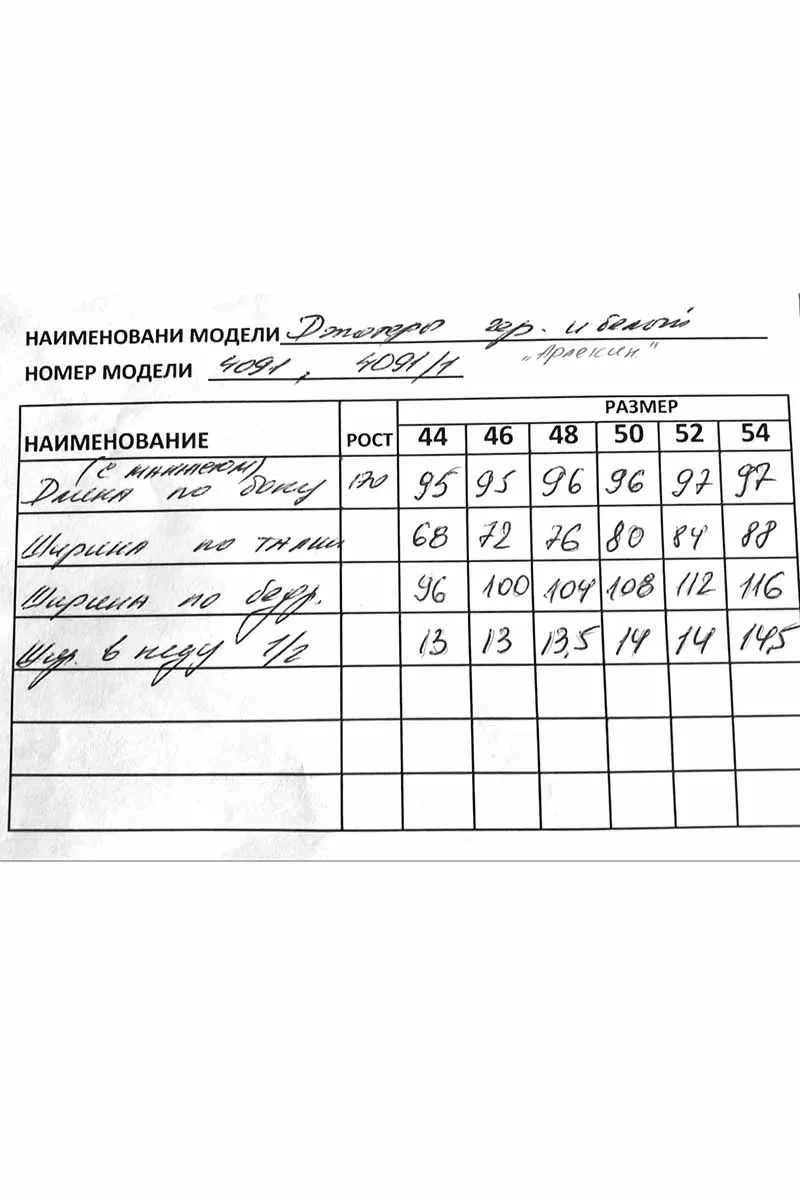 НАИМЕНОВАНИ МОДЕЛИ Джогеры чер. и белый
"Арлекин"
НОМЕР МОДЕЛИ 4091, 4091/1
РАЗМЕР
НАИМЕНОВАНИЕ РОСТ 44 46 48 50 52 54
(с манжетом)
Длина по боку 170 95 95 96 96 97 97
Ширина по талии 68 72 76 80 84 88
Ширина по бедр. 96 100 104 108 112 116
Шир. в низу 1/2 13 13 13,5 14 14 14,5